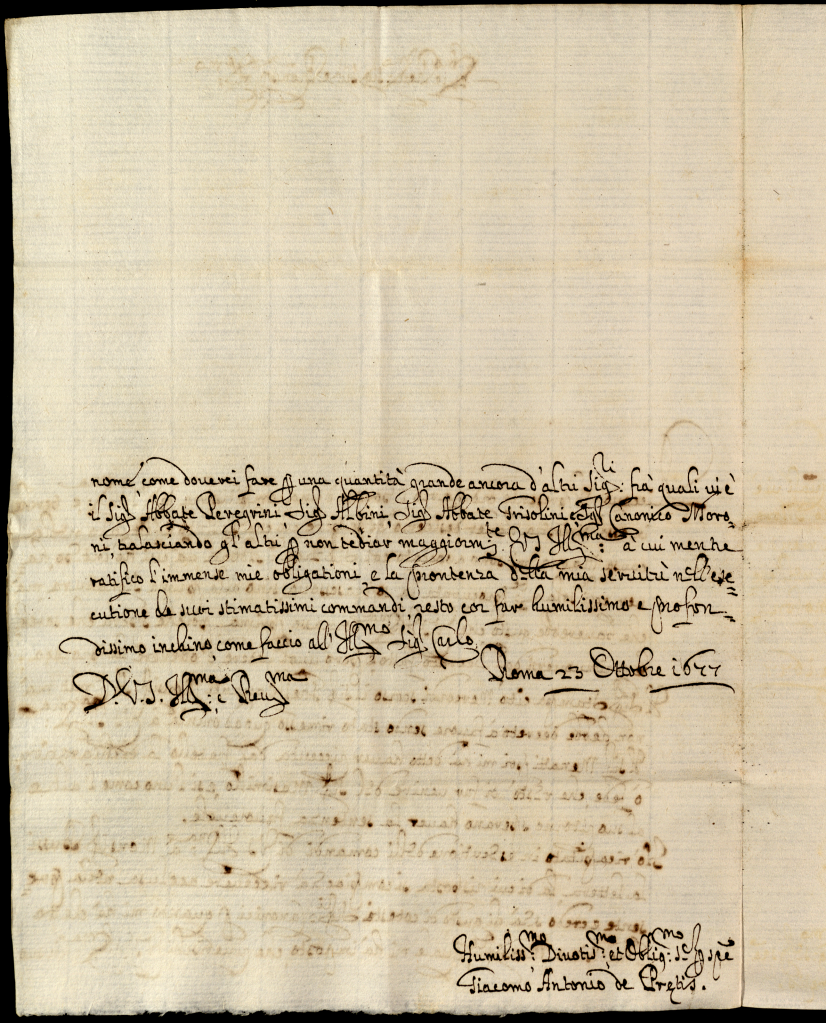 nome come doverei fare per una quantità grande ancora d'altri Sig:ri frà quali vi è
il Sig.r Abbate Peregrini, Sig.r Albini, Sig.r Abbate Grisolini e Sig.r Canonico Moro=
ni, tralasciando gl'altri per non tediar maggiorm:te V.S. Ill:ma a cui mentre
ratifico l'immense mie obligationi, e la prontenza della mia servitù nell'ese=
cutione de suoi stimatissimi commandi resto col far humilissimo e profon=
dissimo inchino come faccio all'Ill.mo Sig.r Carlo.
Roma 23 Ottobre 1677
D.V.S. Ill:ma e Reu:ma
Humiliss:mo Divotis:mo et Oblig:mo
Giacomo Antonio de Pretis.